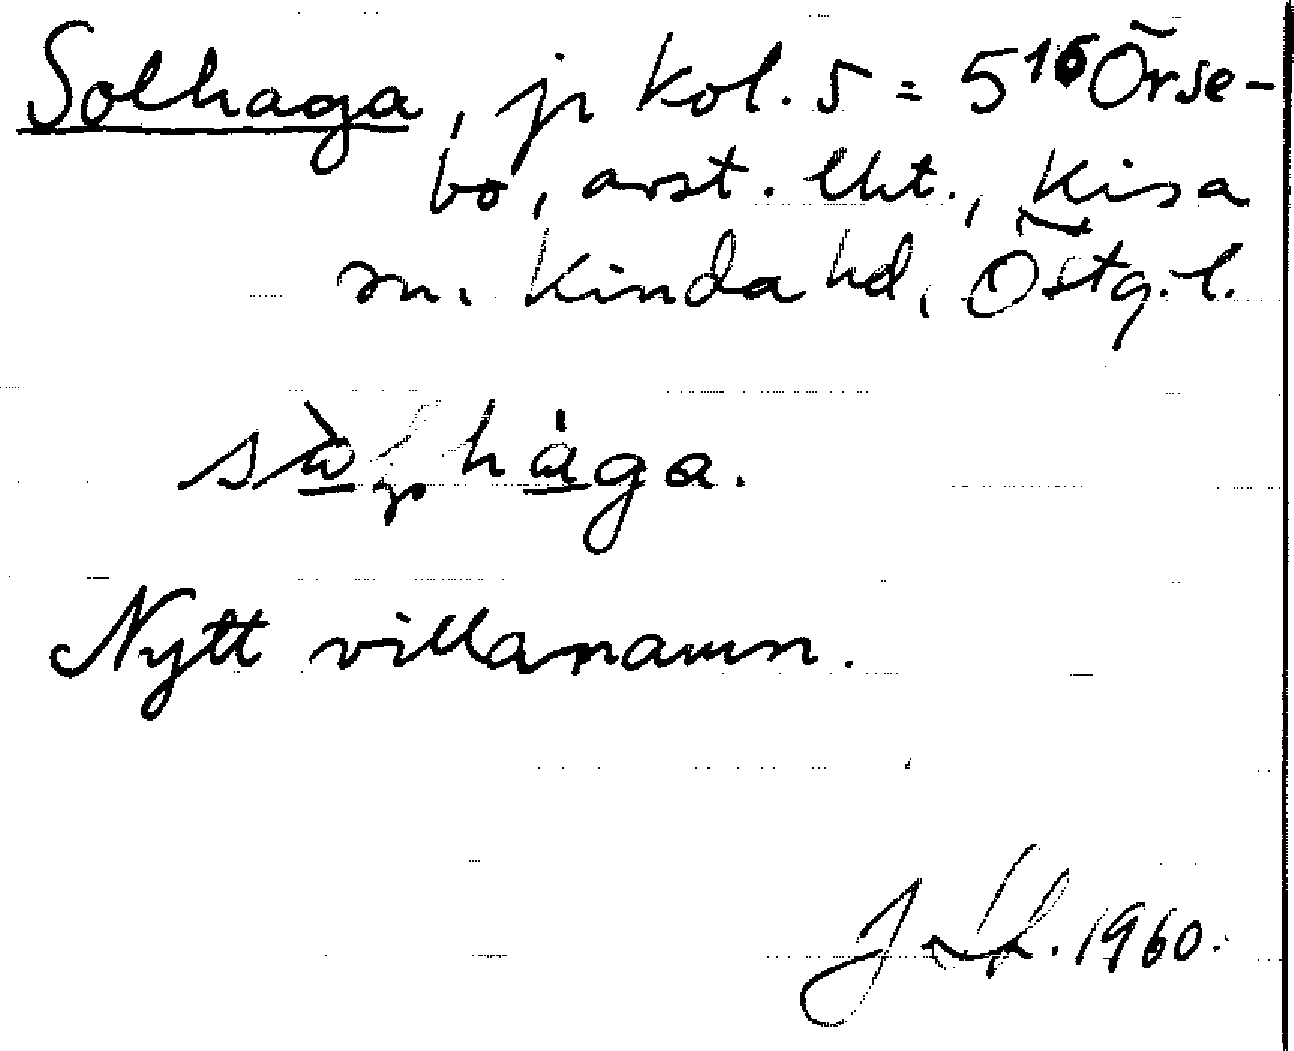 Solhaga, jr kol. 5 = 5¹⁶ Örse-
bo, avst. lht., Kisa
sn. Kinda hd, Östg. l.
hàga.
Nytt villanamn.
1960.